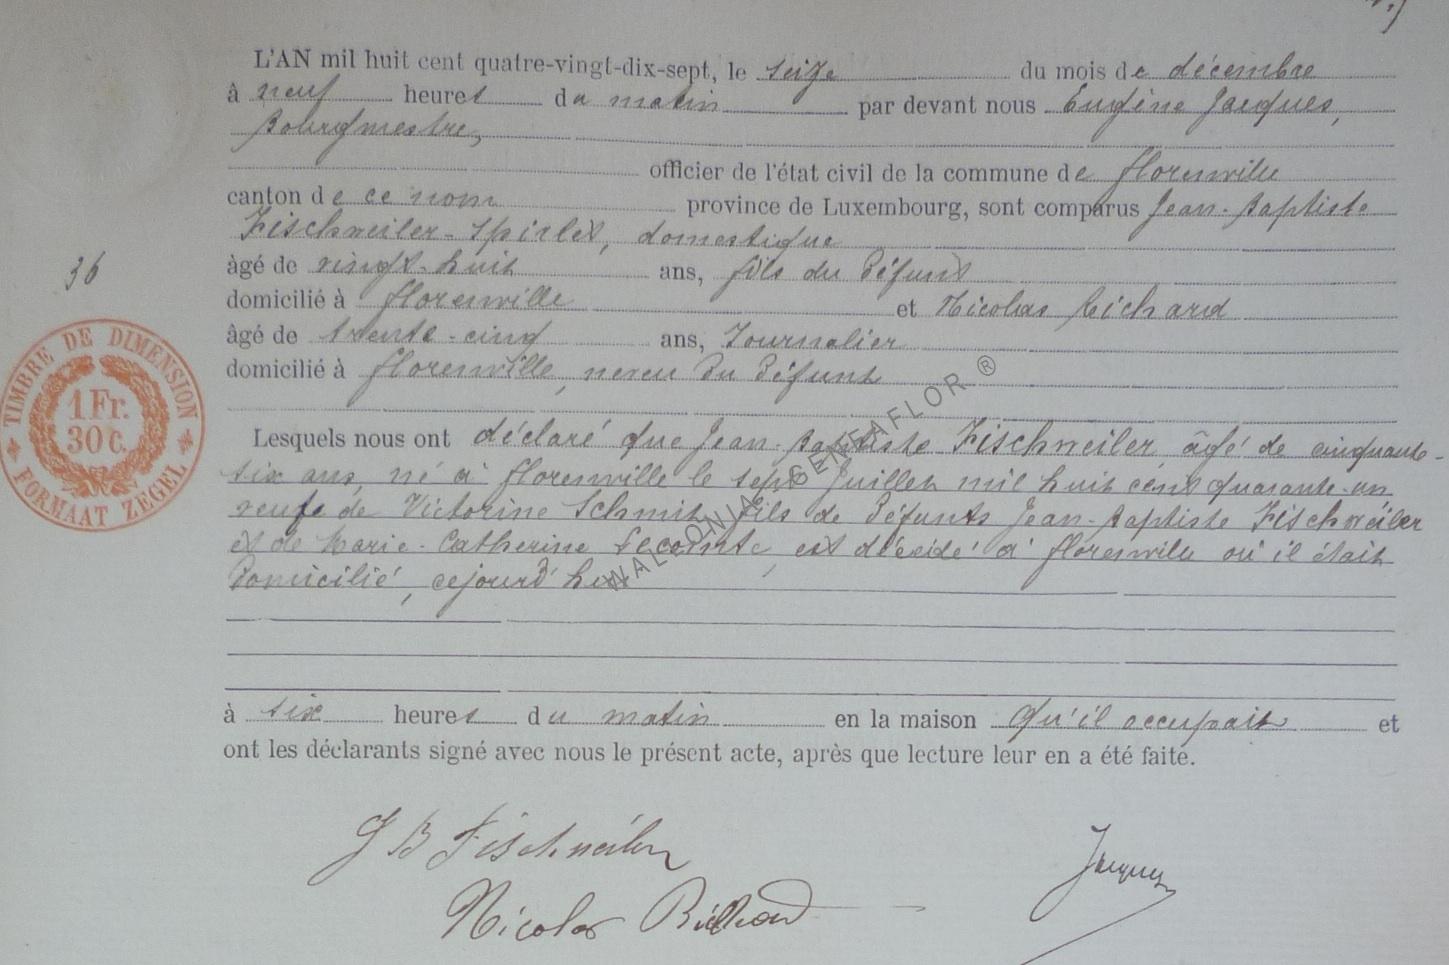 L'AN mil huit cent quatre-vingt-dix-sept, le seize du mois de décembre
à neuf heures du matin par devant nous Eugène Jacques,
Bourgmestre,
officier de l'état civil de la commune de florenville
canton de ce nom province de Luxembourg, sont comparus Jean-Baptiste
Fischweiler-Spirlet, domestique
36
âgé de vingt-huit ans, fils du Défunt
domicilié à florenville et Nicolas Richard
âgé de trente-cinq ans, Journalier
domicilié à florenville, neveu Du Défunt
Lesquels nous ont déclaré que Jean-Baptiste Fischweiler, âgé de cinquante-
six ans, né à florenville le sept Juillet mil huit cent quarante-un
veufs de Victorine Schmit, fils de Défunts Jean-Baptiste Fischweiler
et de Marie-Catherine Lecomte, est décédé à florenville où il était
Domicilié, cejourd'hui
à six heures du matin en la maison qu'il occupait et
ont les déclarants signé avec nous le présent acte, après que lecture leur en a été faite.
J B Fischweiler
Jacques
Nicolas Richard
TIMBRE DE DIMENSION
1 Fr.
30 C.
FORMAAT ZEGEL
WALLONIA GENEAFLOR ®